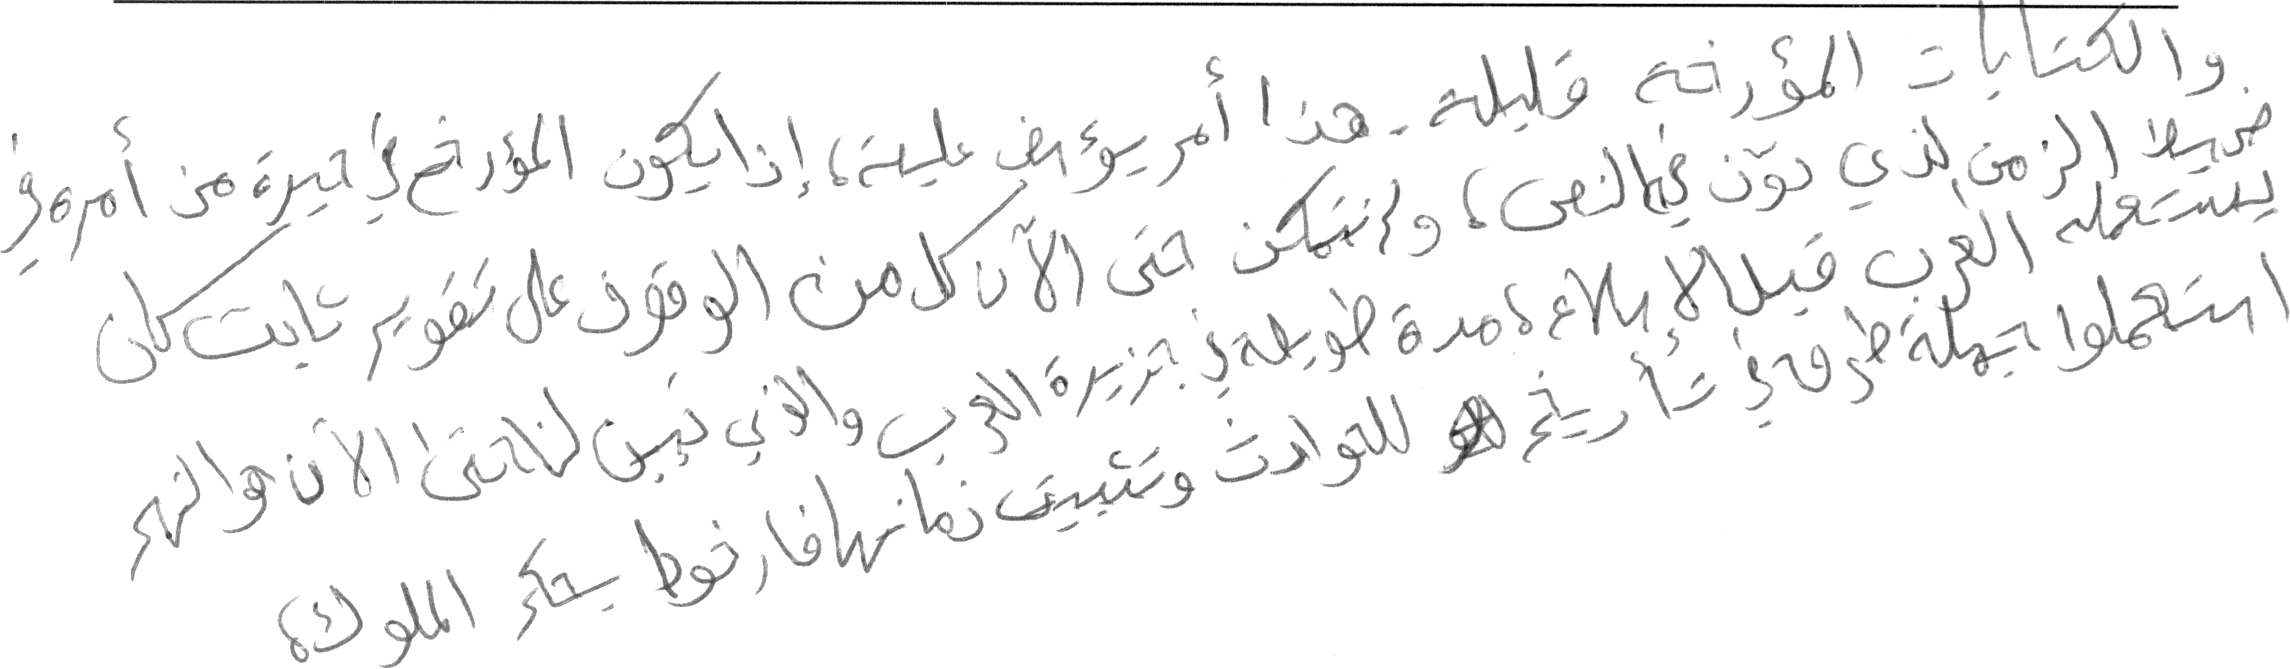 والكتابات المؤرخة قليلة. هذا أمر يؤسف عليه، إذ يكون المؤرخ في حيرة من أمره في
ضبط الزمن الذي دوّن فيه النص، ولم نتمكن حتى الآن من الوقوف على تقويم ثابت كان
يستعمله العرب قبل الإسلام مدة طويلة في جزيرة العرب والذي تبين لنا حتى الآن هو انهم
استعملوا جملة طرق في تأريخهم للحوادث وتثبيت زمانها فارخوا بحكم الملوك،